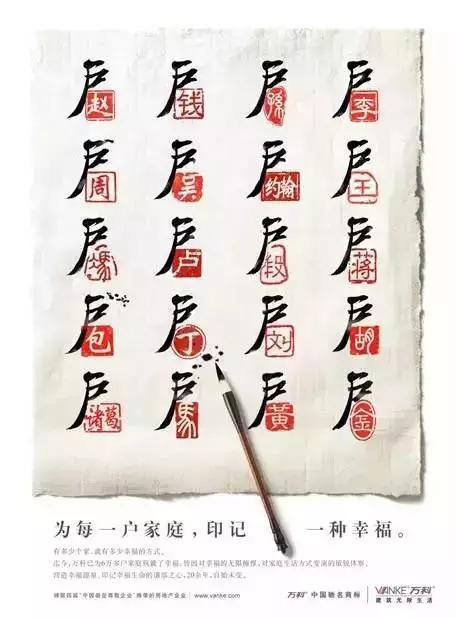 户赵 户钱 户孫 户李
户周 户吴 户约翰 户王
户馮 户卢 户段 户蒋
户包 户丁 户刘 户胡
户诸葛 户馬 户黃 户金
为每一户家庭，印记 一种幸福。
有多少个家，就有多少幸福的方式。
迄今，万科已为6万多户家庭成就了幸福，皆因对幸福的无限憧憬，对家庭生活方式变迁的敏锐体察。
营造幸福源泉，印记幸福生命的谦恭之心，20余年，自始未变。
蝉联四届"中国最受尊敬企业"殊荣的房地产业 | www.vanke.com
万科 中国驰名商标
VANKE 万科
建筑无限生活